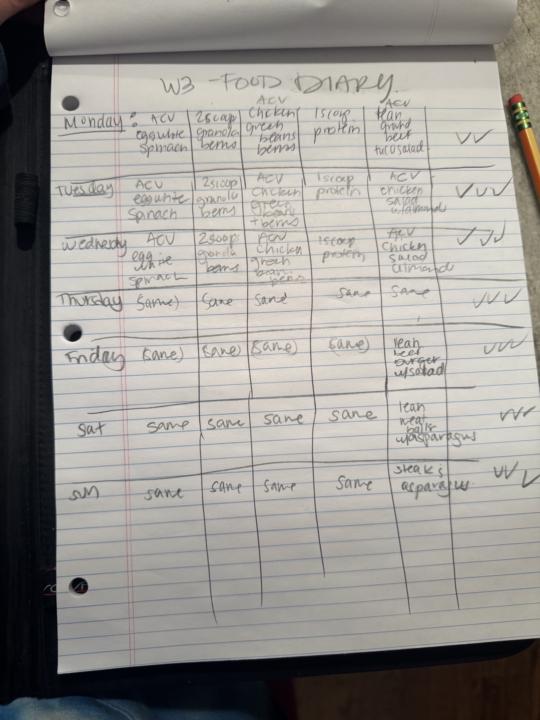 W3 - FOOD DIARY
Monday: ACV 2scoop ACV 1scoop ACV
egg white granola chicken protein lean
spinach berries green ground
beans beef
berries taco salad
Tuesday ACV 2scoop ACV 1scoop ACV
egg white granola chicken protein chicken
spinach berries green salad
bean w/almond
+ berries
Wednesday ACV 2scoop ACV 1scoop ACV
egg granola chicken protein chicken
white berries green salad
spinach bean almond
berries
Thursday (same) same same same same
Friday (same) (same) (same) (same) lean
beef
burger
w/salad
Sat same same same same lean
meat
balls
w/asparagus
sun same same same same steak &
asparagus